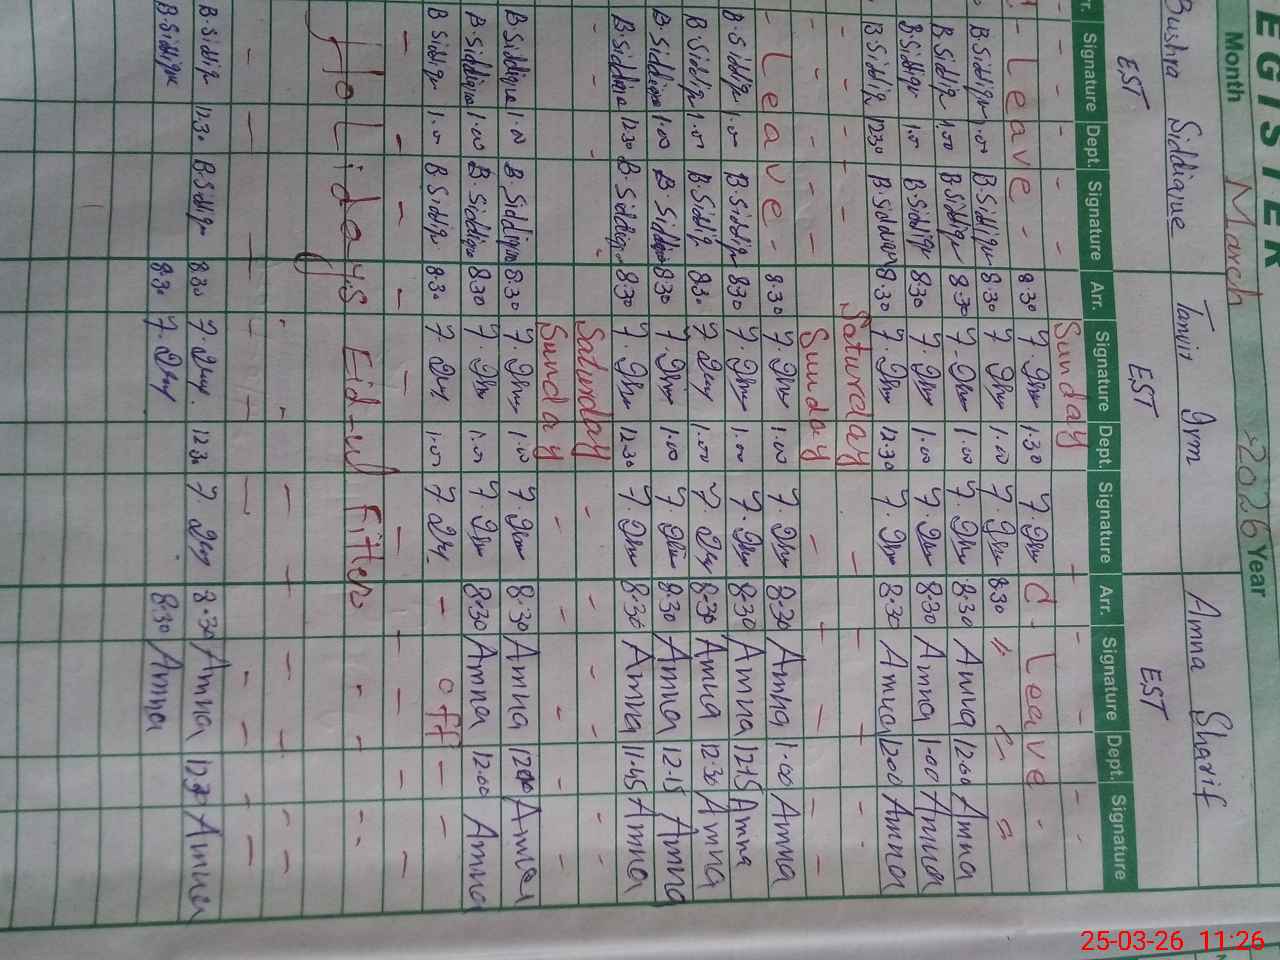 EGISTER
Month March 2026 Year
Bushra Siddique Tanvir Irm Amna Sharif
EST EST EST
r. Signature Dept. Signature Arr. Signature Dept. Signature Arr. Signature Dept. Signature
Sunday
Leave 8.30 T. Irm 1.30 T. Irm C. Leave
B.Siddique 1.00 B.Siddique 8.30 T. Irm 1.00 T. Irm 8.30 〃 〃 〃
B.Siddique 1.00 B.Siddique 8.30 T. Irm 1.00 T. Irm 8.30 Amna 12.00 Amna
B.Siddique 1.00 B.Siddique 8.30 T. Irm 1.00 T. Irm 8.30 Amna 1.00 Amna
B.Siddique 12.30 B.Siddique 8.30 T. Irm 12.30 T. Irm 8.30 Amna 12.00 Amna
Saturday
Sunday
Leave 8.30 T. Irm 1.00 T. Irm 8.30 Amna 1.00 Amna
B.Siddique 1.00 B.Siddique 8.30 T. Irm 1.00 T. Irm 8.30 Amna 12.15 Amna
B.Siddique 1.00 B.Siddique 8.30 T. Irm 1.00 T. Irm 8.30 Amna 12.30 Amna
B.Siddique 1.00 B.Siddique 8.30 T. Irm 1.00 T. Irm 8.30 Amna 12.15 Amna
B.Siddique 12.30 B.Siddique 8.30 T. Irm 12.30 T. Irm 8.30 Amna 11.45 Amna
Saturday
Sunday
B.Siddique 1.00 B.Siddique 8.30 T. Irm 1.00 T. Irm 8.30 Amna 12.00 Amna
B.Siddique 1.00 B.Siddique 8.30 T. Irm 1.00 T. Irm 8.30 Amna 12.00 Amna
B.Siddique 1.00 B.Siddique 8.30 T. Irm 1.00 T. Irm - off - -
Holidays Eid-ul Fitter
B.Siddique 12.30 B.Siddique 8.30 T. Irm 12.30 T. Irm 8.30 Amna 12.30 Amna
B.Siddique 8.30 T. Irm 8.30 Amna
25-03-26 11:26